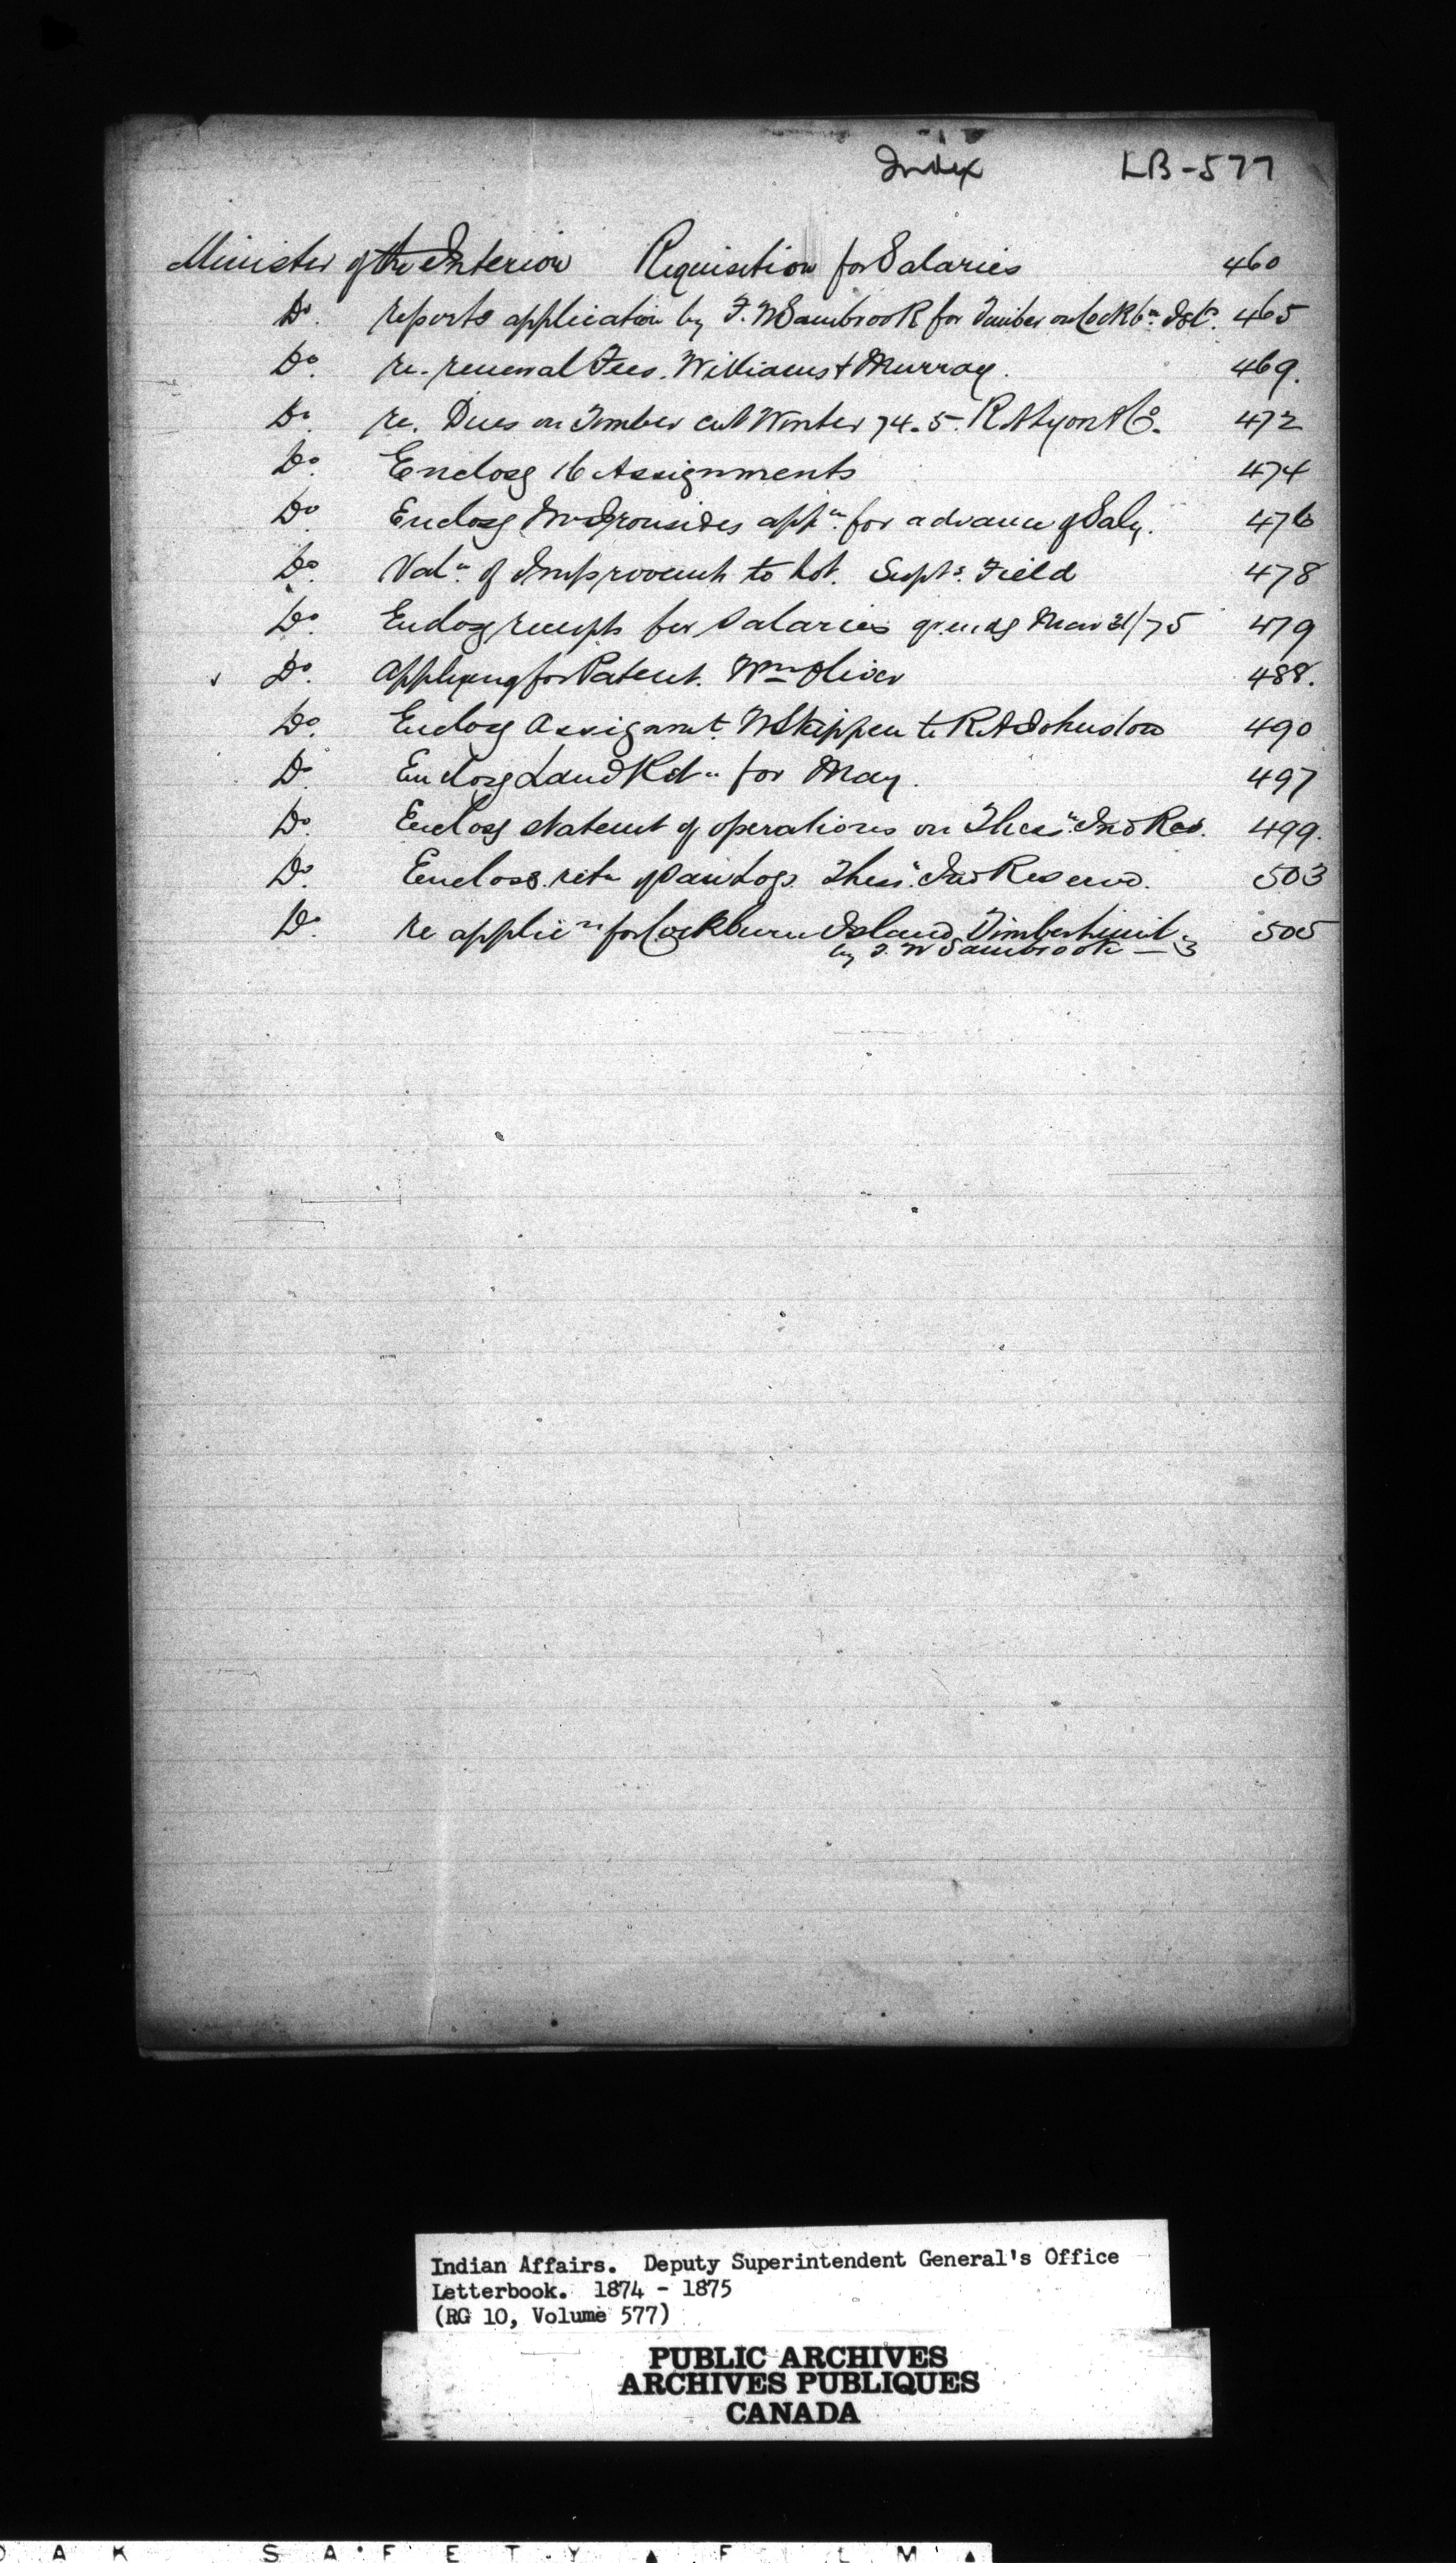 Index LB-577
Minister of the Interior Requisition for Salaries 460
Do. reports application by F. W Sambrook for Timber on Cockbn. Isld. 465
Do. re. renewal Fees. Williams & Murray. 469.
Do. re. Dues on Timber cut Winter 74-5. R A Lyon & Co. 472
Do. Enclosg 16 Assignments 474
Do. Enclosg Mr Ironsides appn. for advance of Saly. 476
Do. Valn. of Improvemts to Lot. Supts. Field 478
Do. Enclosg receipts for Salaries qr. endg Mar 31/75 479
Do. applying for Patent. Wm Oliver 488.
Do. Enclosg Assignmt. W Skippen to R A Johnston 490
Do. Enclosg Land Retn for May. 497
Do. Enclosg statemt of operations on Thessn. Ind Res. 499.
Do. Enclosg retn of Saw Logs. Thessn. Ind Reserve. 503
Do. re applicn for Cockburn Island Timber Limit 505
by F. W Sambrook
Indian Affairs. Deputy Superintendent General's Office
Letterbook. 1874 - 1875
(RG 10, Volume 577)
PUBLIC ARCHIVES
ARCHIVES PUBLIQUES
CANADA
SAFETY FILM